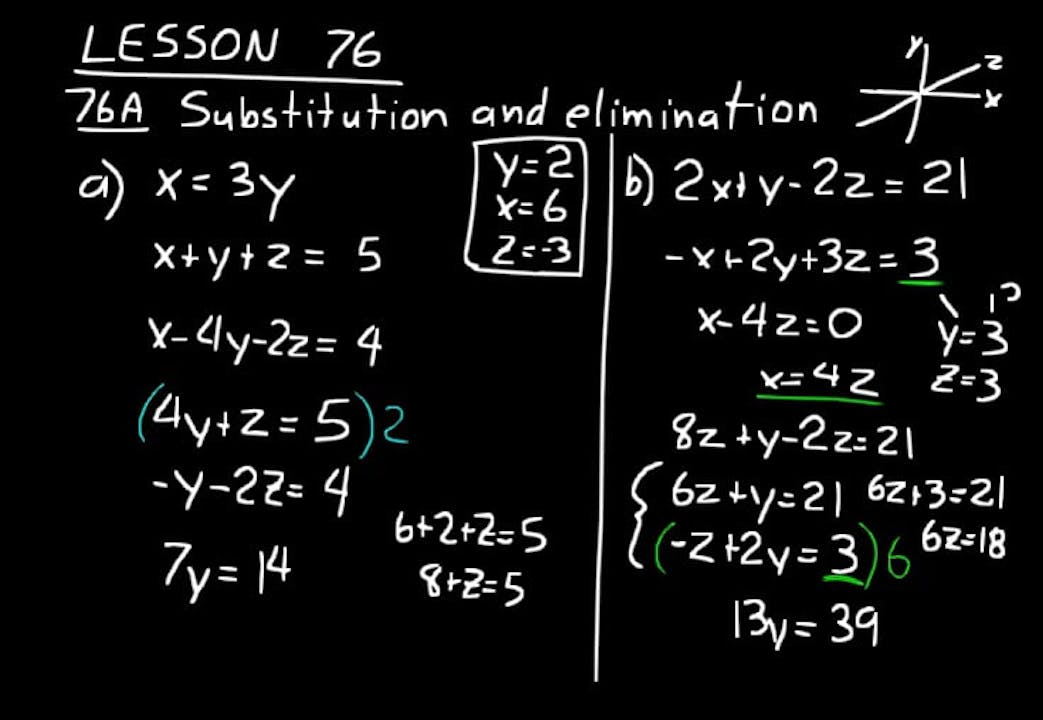 LESSON 76
76A Substitution and elimination
y
z
x
a) x = 3y
x+y+z = 5
x-4y-2z = 4
(4y+z = 5)2
-y-2z = 4
7y = 14
6+2+z=5
8+z=5
y=2
x=6
z=-3
b) 2x+y-2z = 21
-x+2y+3z = 3
x-4z=0
x=4z
8z+y-2z=21
6z+y=21
(-z+2y=3)6
13y=39
6z+3=21
6z=18
y=3
z=3